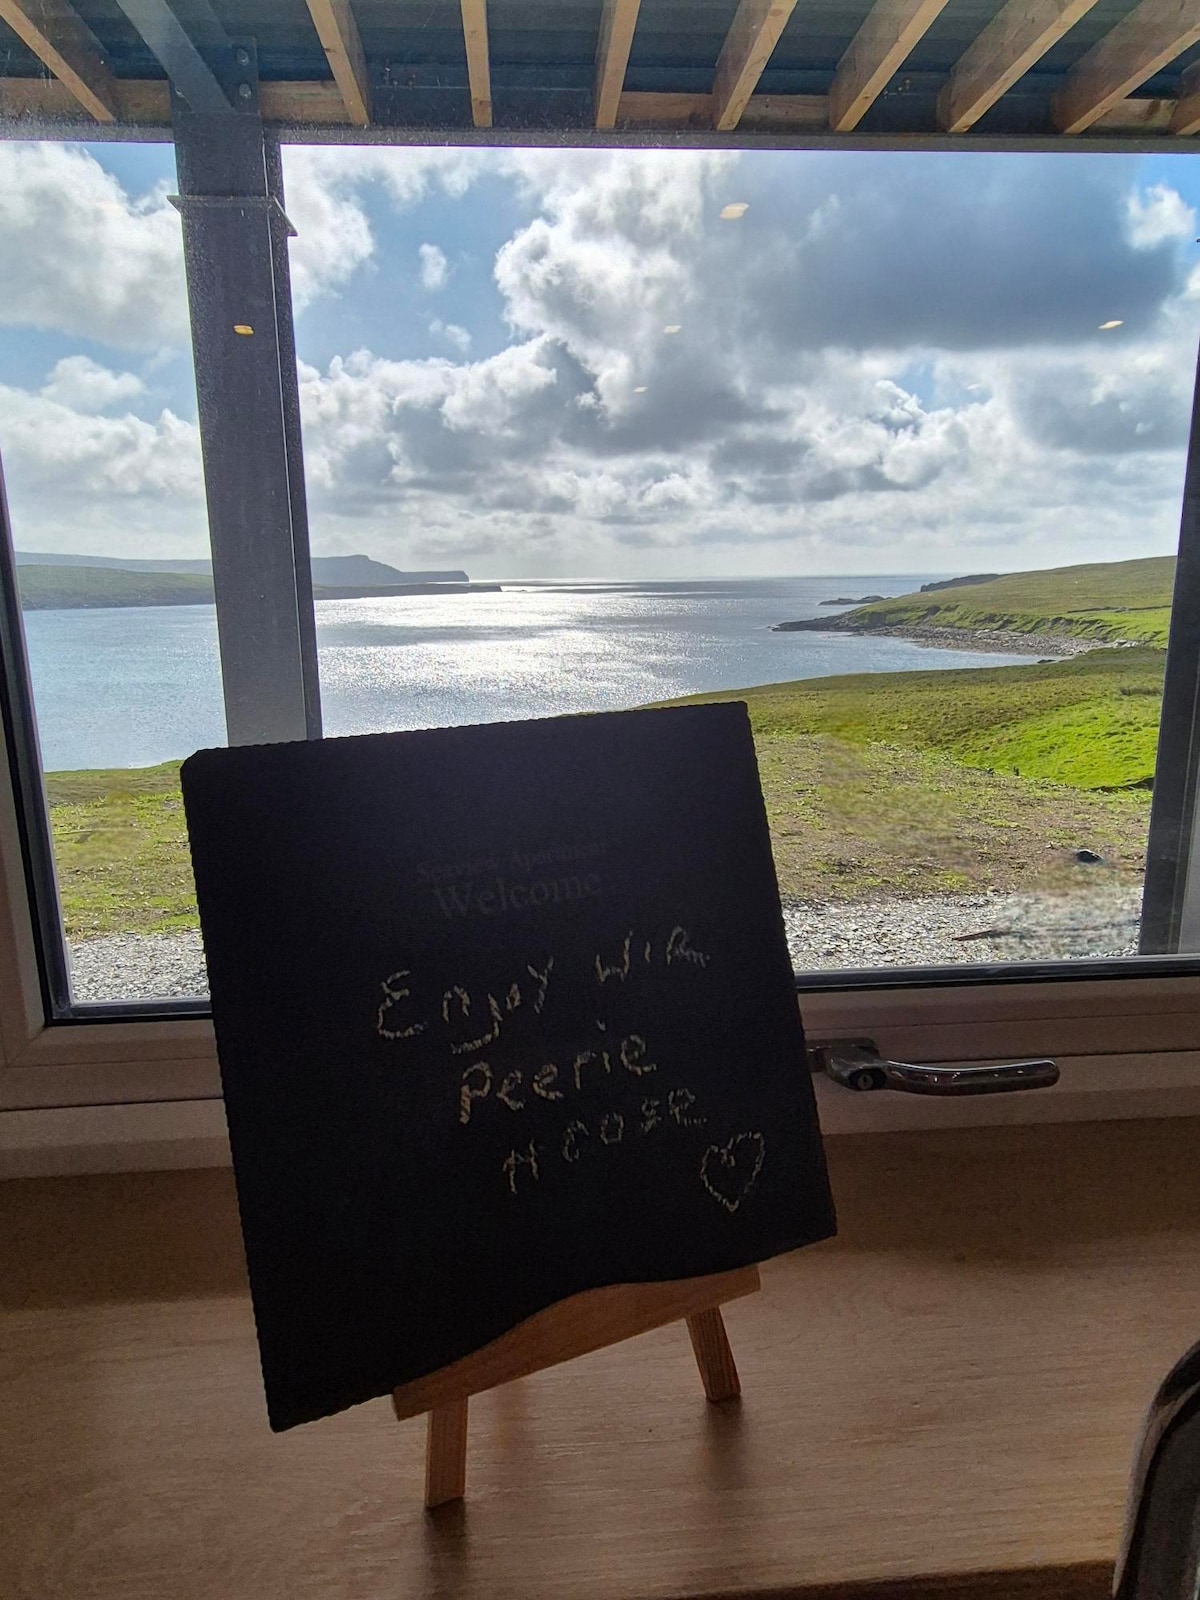 Seaview Apartment
Welcome
Enjoy wir
Peerie
Hoose